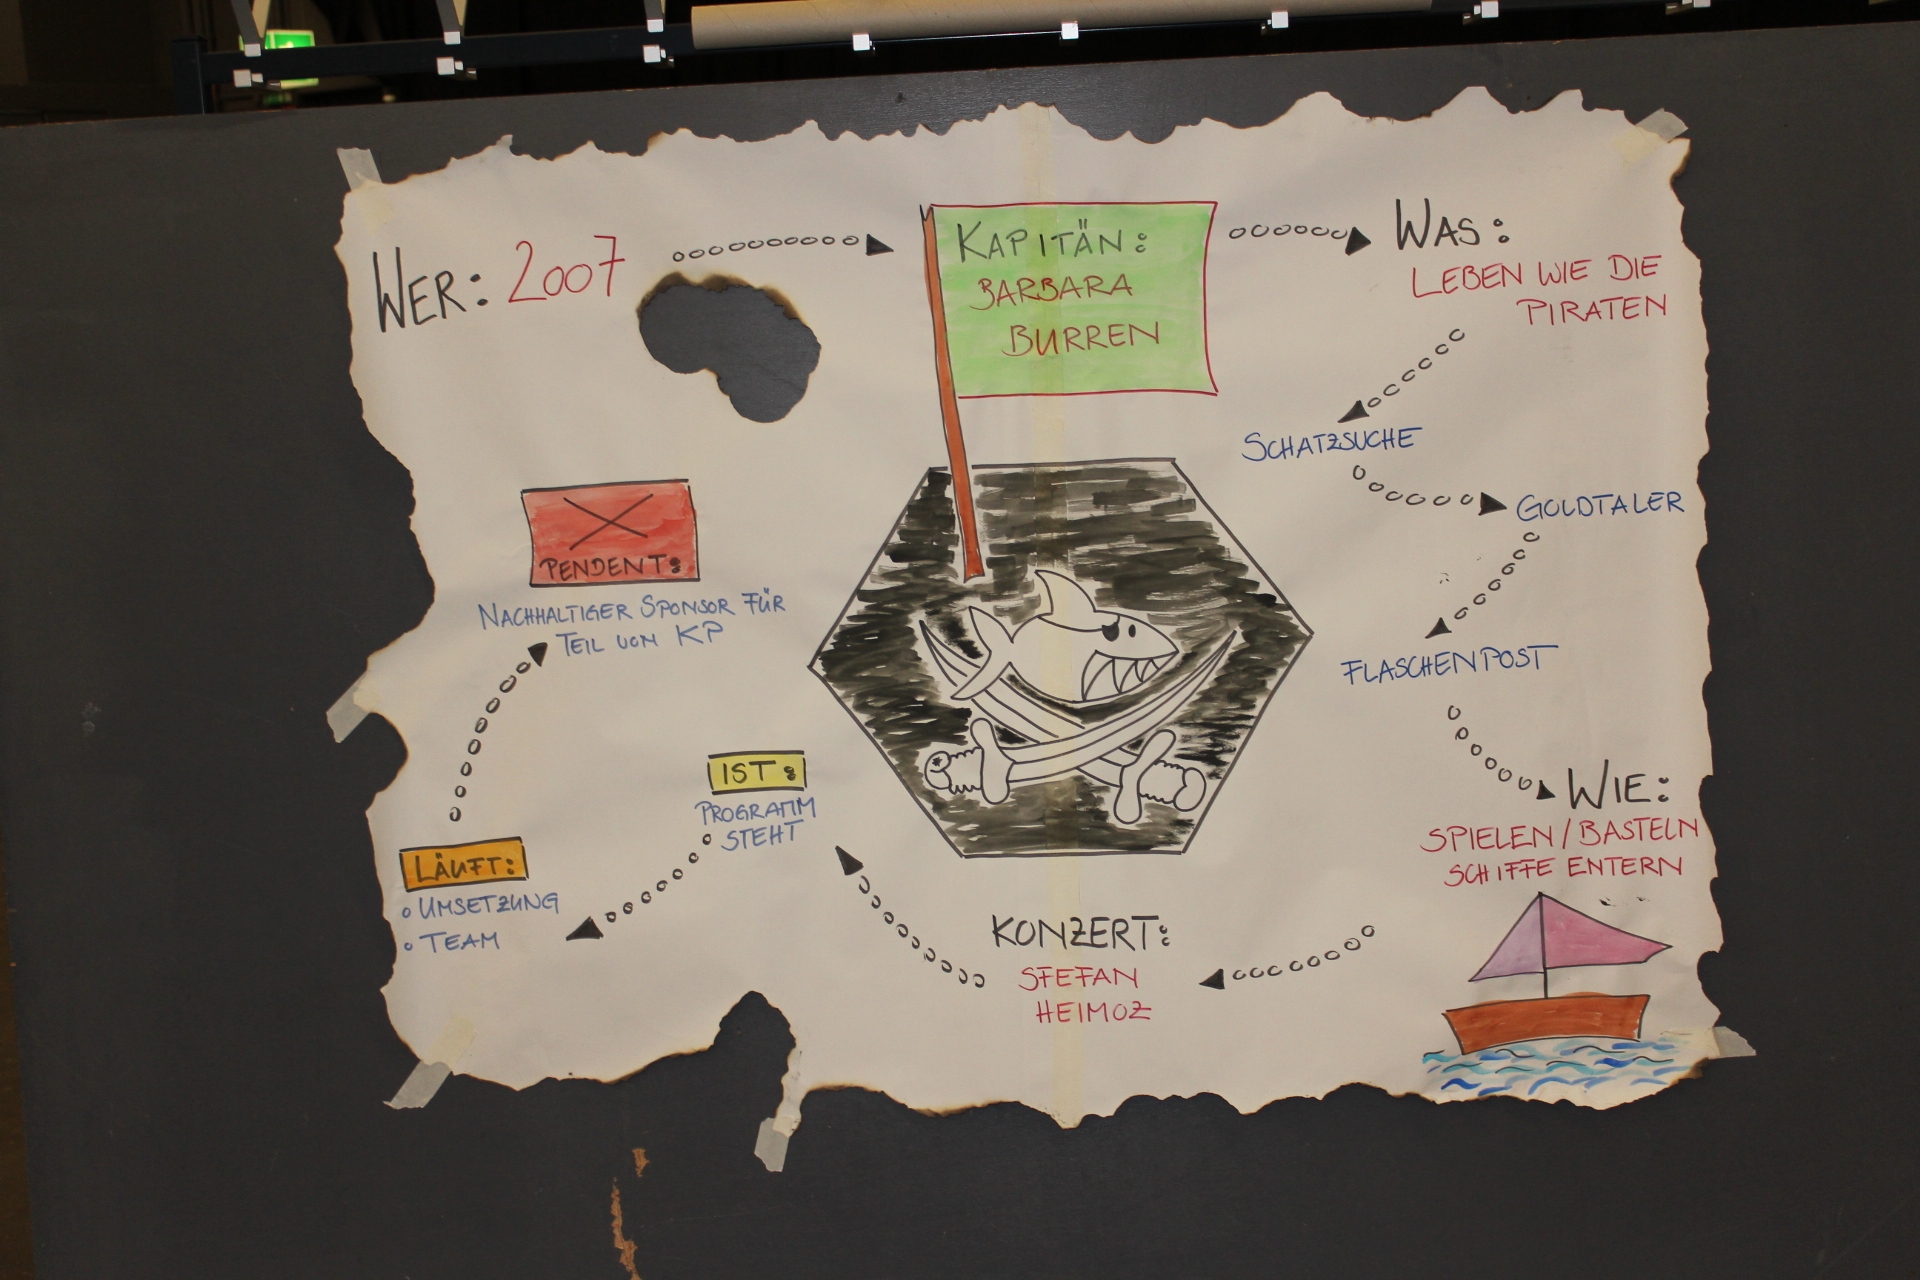 WER: 2007
KAPITÄN:
BARBARA
BURREN
WAS:
LEBEN WIE DIE
PIRATEN
SCHATZSUCHE
GOLDTALER
FLASCHENPOST
WIE:
SPIELEN/BASTELN
SCHIFFE ENTERN
KONZERT:
STEFAN
HEIMOZ
IST:
PROGRAMM
STEHT
LÄUFT:
o UMSETZUNG
o TEAM
PENDENT:
NACHHALTIGER SPONSOR FÜR
TEIL VOM KP